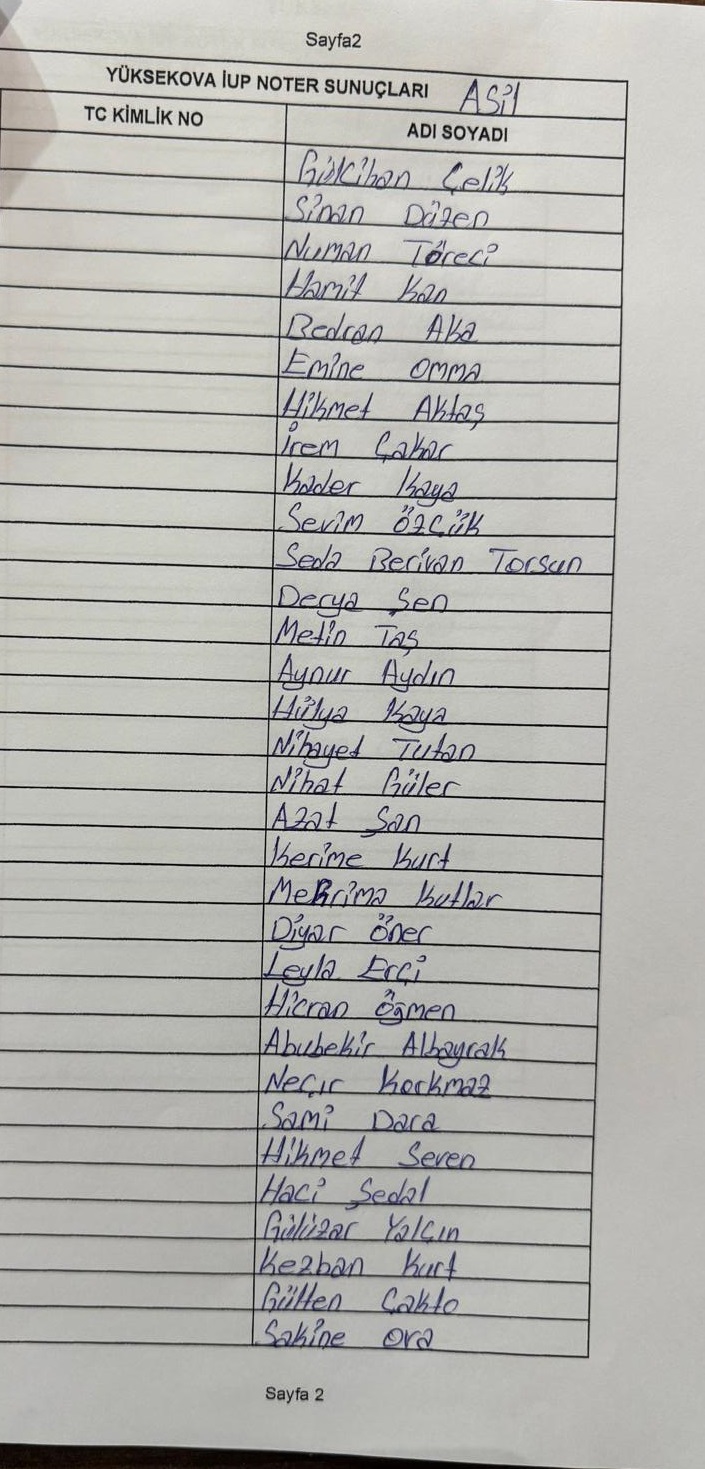 Sayfa2
YÜKSEKOVA İUP NOTER SUNUÇLARI ASil
TC KİMLİK NO ADI SOYADI
Gülcihan Çelik
Sinan Düzen
Numan Töreci
Hamit Kan
Bedran Aka
Emine omma
Hikmet Aktaş
İrem Çakar
Kader Kaya
Sevim Özcük
Seda Berivan Torsun
Derya Şen
Metin Taş
Aynur Aydın
Hülya Kaya
Nihayet Tutan
Nihat Güler
Azat Şan
Kerime Kurt
Mekrima Kutlar
Diyar Öner
Leyla Erçi
Hicran Öğmen
Abubekir Albayrak
Neçır Korkmaz
Sami Dara
Hikmet Seven
Haci Şedal
Gülüzar Yalçın
Kezban Kurt
Gülten Çakto
Sakine ora
Sayfa 2